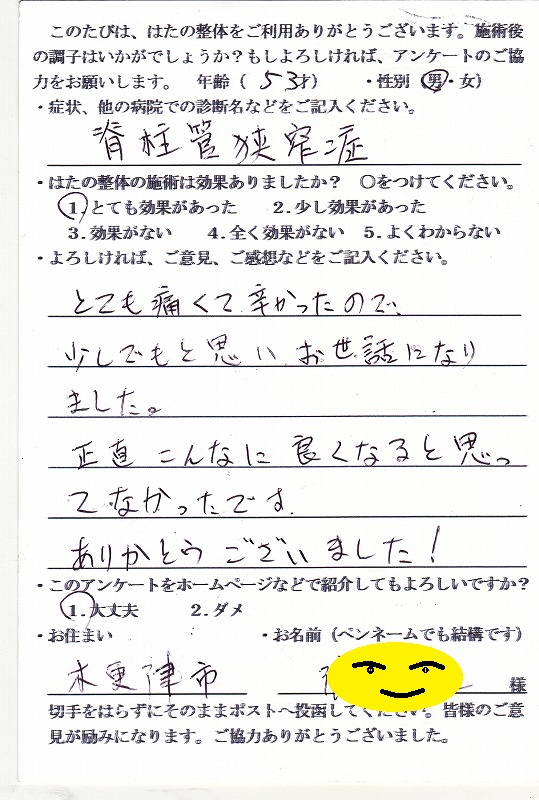 このたびは、はたの整体をご利用ありがとうございます。施術後
の調子はいかがでしょうか？もしよろしければ、アンケートのご協
力をお願いします。 年齢（ 53才） ・性別（男・女）
・症状、他の病院での診断名などをご記入ください。
脊柱管狭窄症
・はたの整体の施術は効果ありましたか？ ○をつけてください。
1.とても効果があった 2.少し効果があった
3.効果がない 4.全く効果がない 5.よくわからない
・よろしければ、ご意見、ご感想などをご記入ください。
とても痛くて辛かったので、
少しでもと思い お世話になり
ました。
正直 こんなに 良くなると思っ
てなかったです。
ありがとうございました！
・このアンケートをホームページなどで紹介してもよろしいですか？
1.大丈夫 2.ダメ
・お住まい ・お名前（ペンネームでも結構です）
木更津市 様
切手をはらずにそのままポストへ投函してください。皆様のご意
見が励みになります。ご協力ありがとうございました。